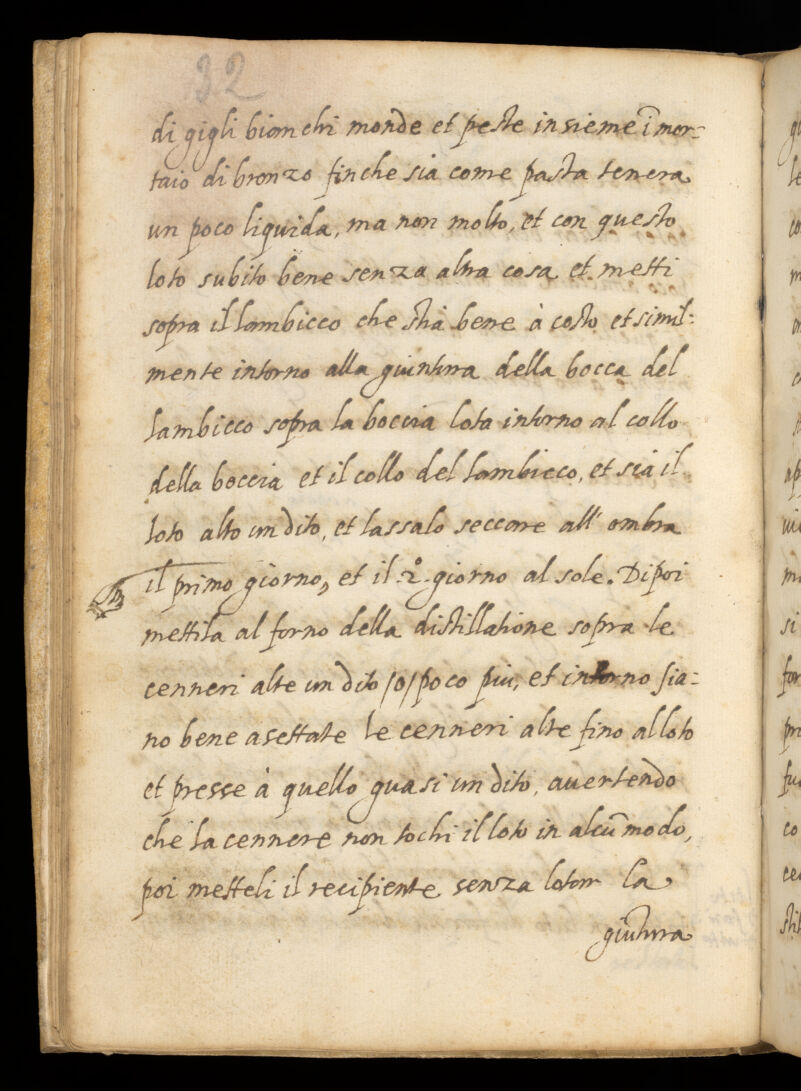 32
di gigli bianchi monde et peste insieme ĩ mor=
taio di bronzo finche sia come pasta tenera
un poco liquida, ma non molto, et con questo
loto subito bene senza altra cosa et metti
sopra il lambicco che stia bene à costo et simil:
mente intorno alla giuntura della bocca del
lambicco sopra la boccia lota intorno al collo
della boccia et il collo del lambicco, et sia il
loto alto un dito, et lassalo seccare all' ombra
il primo giorno, et il 2.º giorno al sole. Dipoi
mettila al forno della distillatione sopra le
cenneri alte un dito /o/ poco piu, et intorno sia=
no bene asettate le cenneri alte fino al loto
et presse à quello quasi un dito, auertendo
che la cennere non tochi il loto in alcũ modo,
poi metteli il recipiente senza lotar la
giũtura